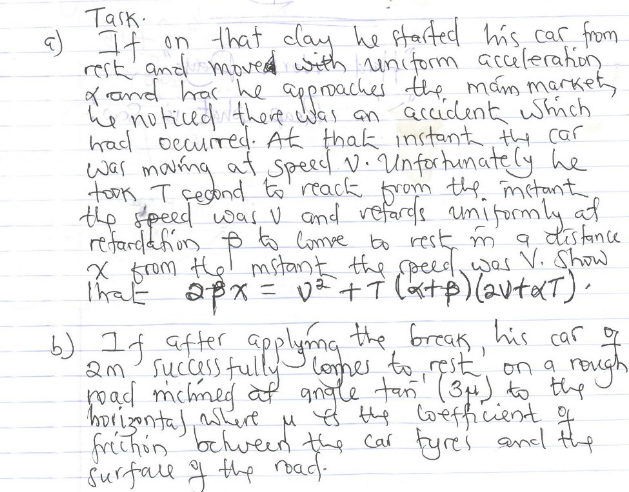 Task.
a) If on that day he started his car from
rest and moved with uniform acceleration
α and has he approaches the main market,
he noticed there was an accident which
had occurred. At that instant the car
was moving at speed V. Unfortunately he
took T second to react from the instant
the speed was V and retards uniformly at
retardation β to come to rest in a distance
x from the instant the speed was V. Show
that 2βx = V² + T(α+β)(2V+αT).
b) If after applying the break, his car of
2m successfully comes to rest on a rough
road inclined at angle tan⁻¹(3μ) to the
horizontal where μ is the coefficient of
friction between the car tyres and the
surface of the road.